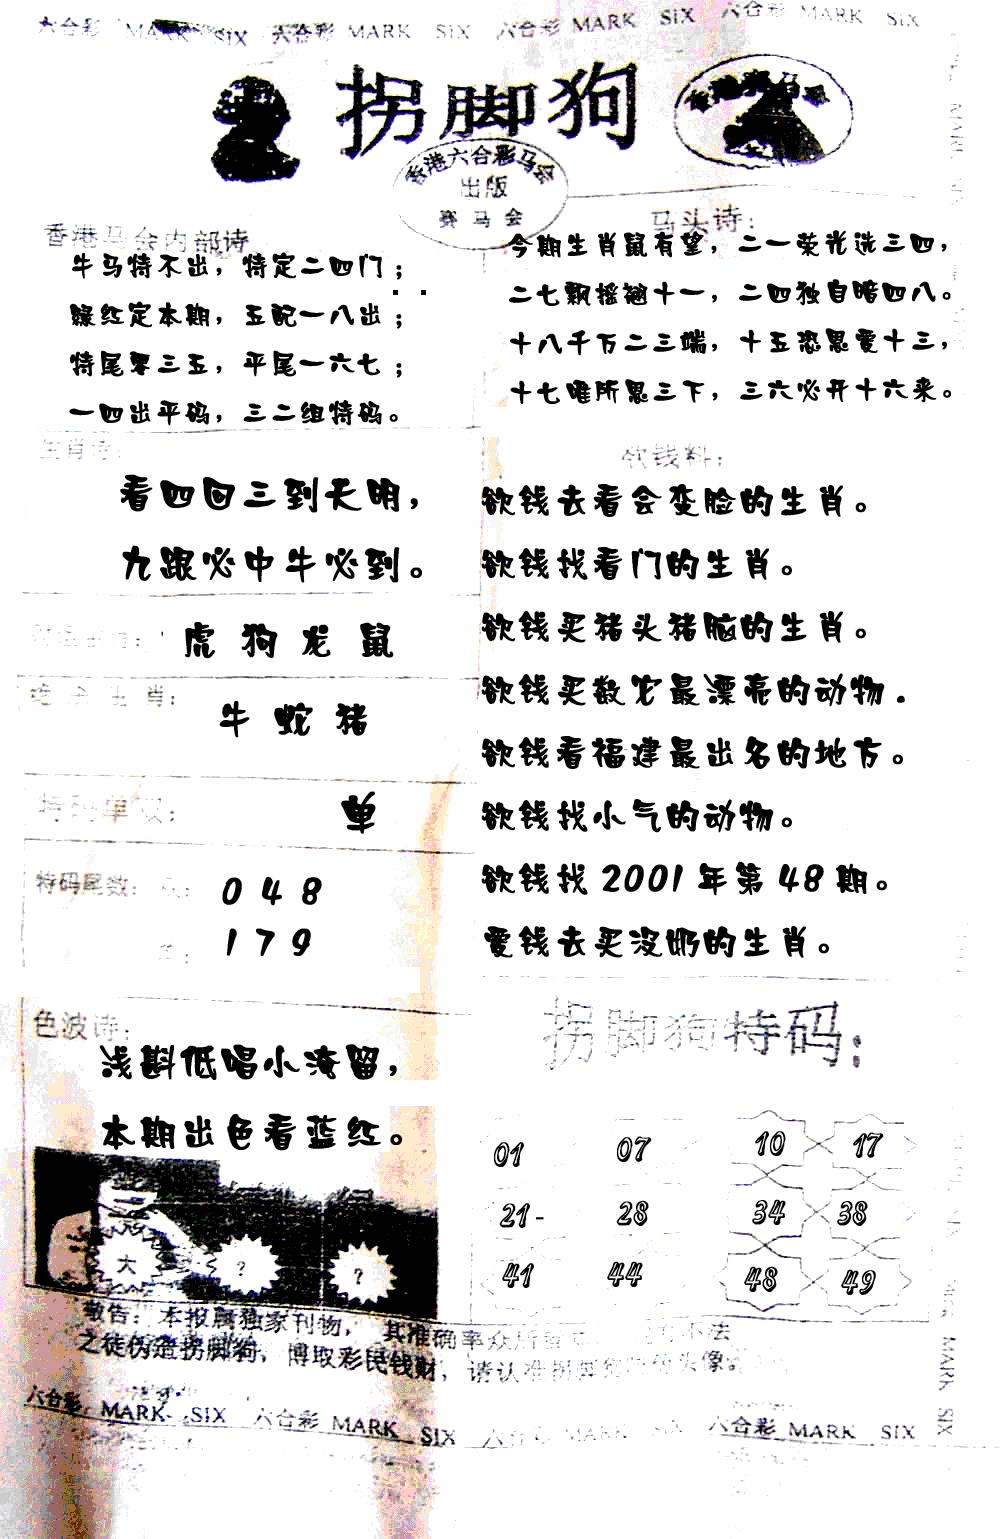 六合彩 MARK SIX 六合彩 MARK SIX 六合彩 MARK SIX 六合彩 MARK SIX
拐脚狗
香港六合彩马会
出版
赛马会
香港马会内部诗
牛马特不出，特定二四门；
绿红定本期，五配一八出；
特尾零三五，平尾一六七；
一四出平码，三二组特码。
马头诗：
今期生肖鼠有望，二一荣光选三四，
二七飘摇翘十一，二四独自暗四八。
十八千万二三端，十五恐恩爱十三，
十七唯所思三下，三六必开十六来。
生肖诗：
看四回三到天明，
九跟必中牛必到。
虎 狗 龙 鼠
绝杀生肖：
牛 蛇 猪
特码单双：
单
特码尾数：
0 4 8
1 7 9
色波诗：
浅斟低唱小淹留，
本期出色看蓝红。
大 ? ?
欲钱料：
欲钱去看会变脸的生肖。
欲钱找看门的生肖。
欲钱买猪头猪脑的生肖。
欲钱买数它最漂亮的动物.
欲钱看福建最出名的地方。
欲钱找小气的动物。
欲钱找 2001 年第 48 期。
爱钱去买没奶的生肖。
拐脚狗特码：
01 07 10 17
21- 28 34 38
41 44 48 49
敬告：本报属独家刊物，其准确率众所 不法
之徒伪造拐脚狗，博取彩民钱财，请认准拐脚 头像
六合彩 MARK SIX 六合彩 MARK SIX 六合彩 MARK SIX 六合彩 MARK SIX
MARK SIX